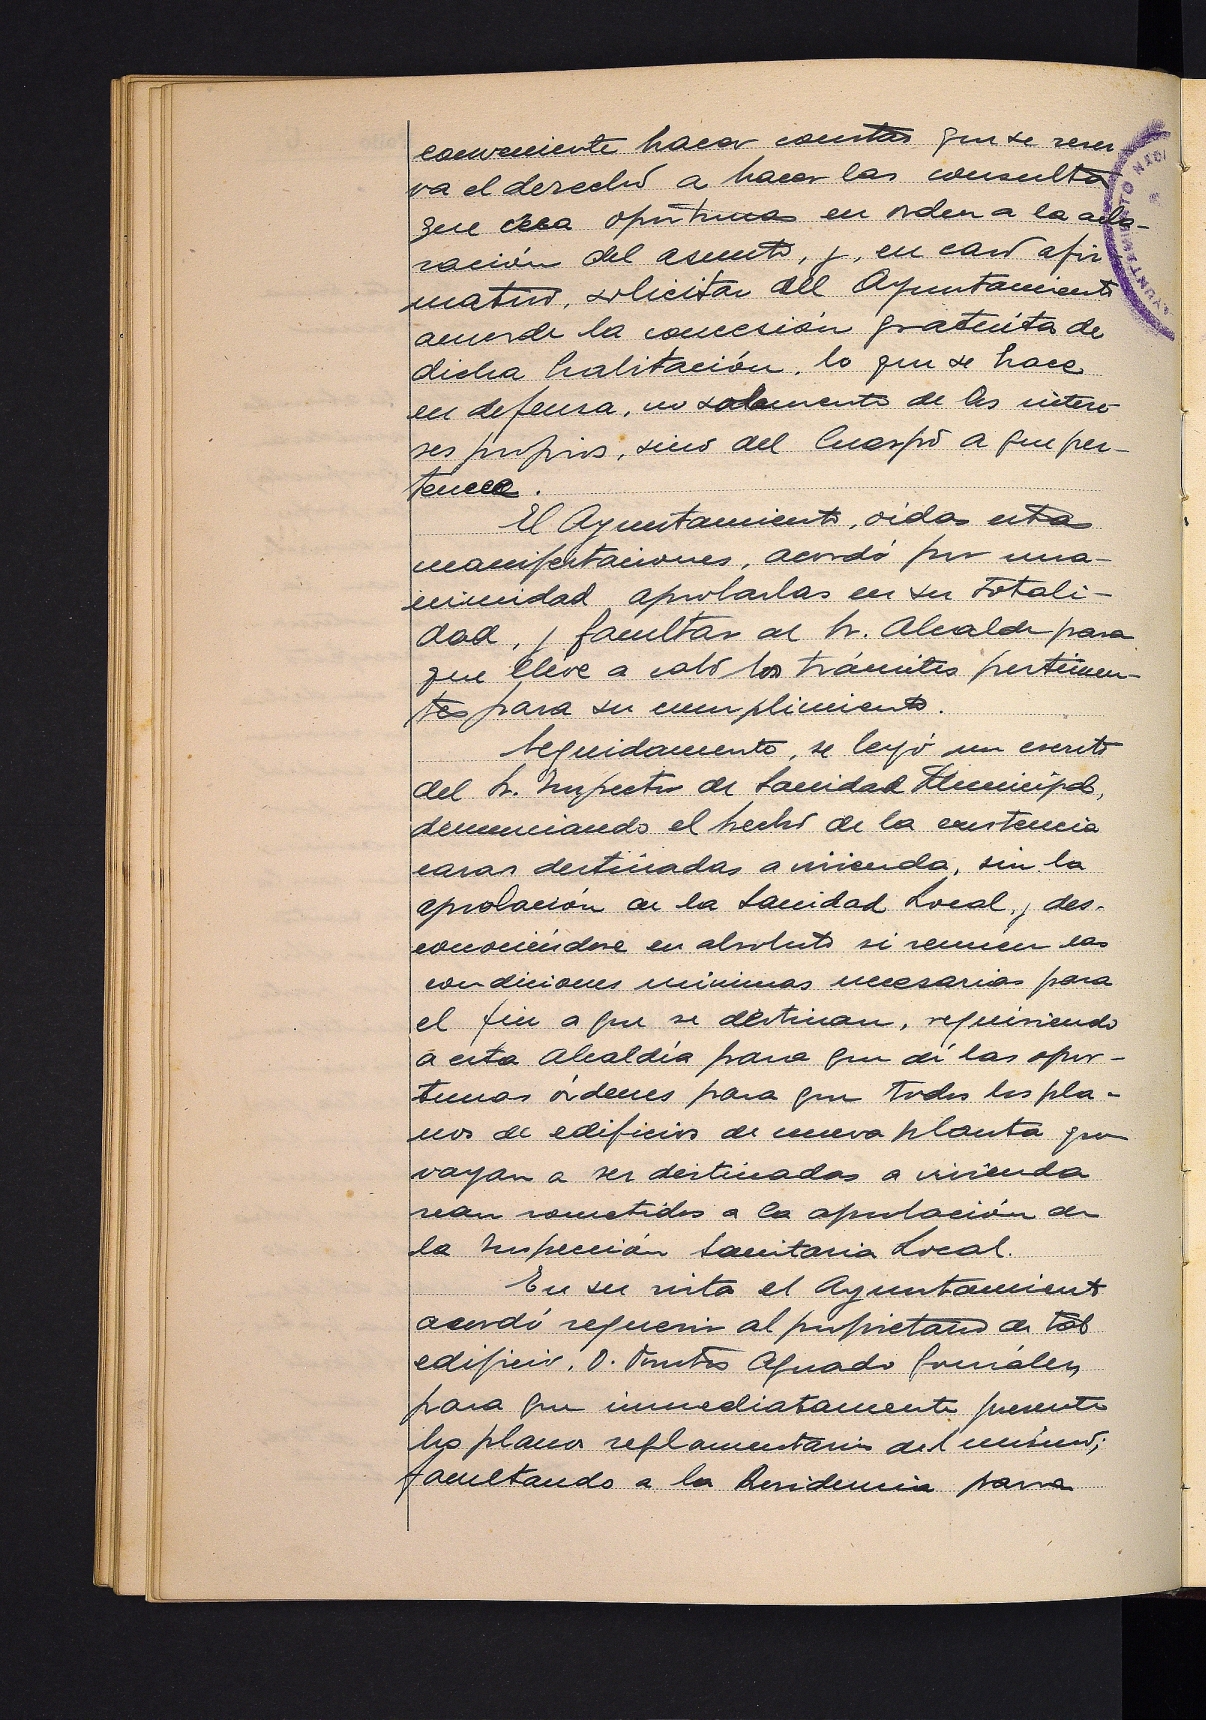 conveniente hacer constar que se reser
va el derecho a hacer las consultas
que crea oportunas en orden a la acla-
ración del asunto, y, en caso afir
mativo, solicitar del Ayuntamiento
acuerde la concesión gratuita de
dicha habitación. lo que se hace
en defensa, no solamente de los intere
ses propios, sino del Cuerpo a que per-
tenece.
El Ayuntamiento, oidas estas
manifestaciones, acordó por una-
nimidad aprobarlas en su totali-
dad, y facultar al Sr. Alcalde para
que lleve a cabo los trámites pertinen-
tes para su cumplimiento.
Seguidamente, se leyó un escrito
del Sr. Inspector de Sanidad Municipal,
denunciando el hecho de la existencia
casas destinadas a vivienda, sin la
aprobación de la Sanidad Local, y des-
conociéndose en absoluto si reunen las
condiciones mínimas necesarias para
el fin a que se destinan, requiriendo
a esta Alcaldía para que dé las opor-
tunas órdenes para que todos los pla-
nos de edificios de nueva planta que
vayan a ser destinadas a vivienda
sean sometidos a la aprobación de
la Inspección Sanitaria Local.
En su vista el Ayuntamiento
acordó requerir al propietario de tal
edificio, D. Aguado González,
para que inmediatamente presente
los planos reglamentarios del mismo;
facultando a la Presidencia para
AYUNTAMIENTO